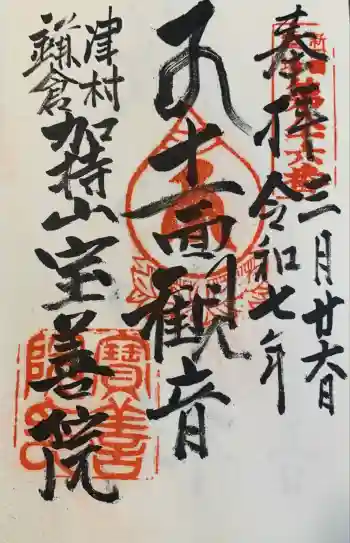 奉拝
令和七年
三月廿六日
十一面観音
鎌倉
津村
加持山宝善院
寶善
院